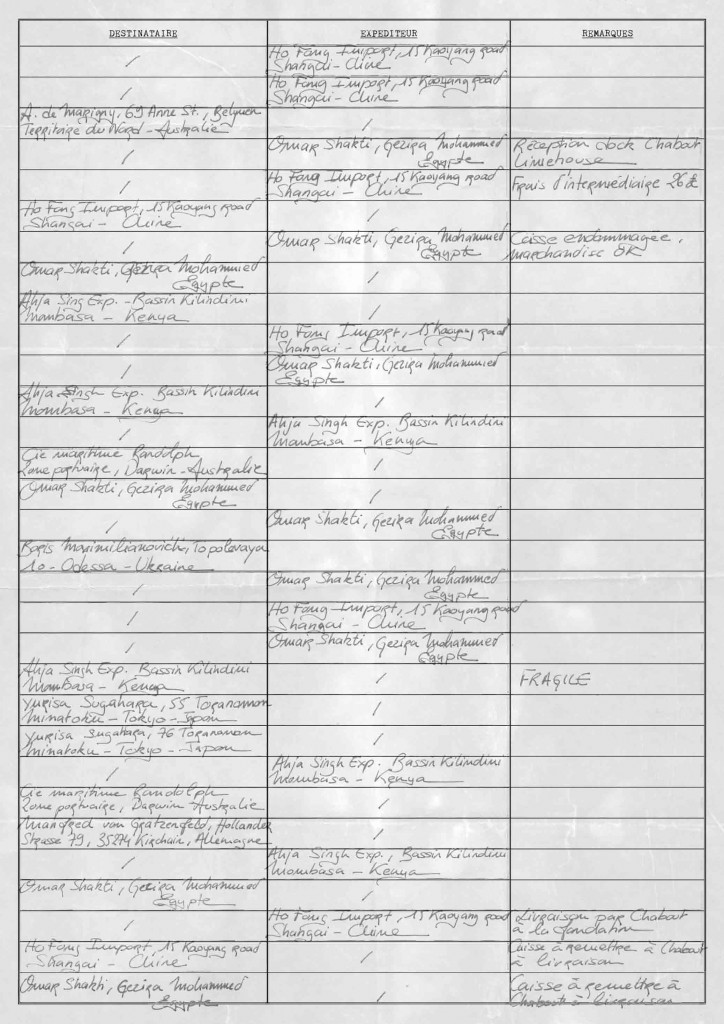 DESTINATAIRE EXPEDITEUR REMARQUES
/ Ho Fong Import, 15 Kaoyang road
Shangai - Chine
/ Ho Fong Import, 15 Kaoyang road
Shangai - Chine
A. de Marigny, 69 Anne St., Belyuen /
Territoire du Nord - Australie
/ Omar Shakti, Gezira Mohammed Réception dock Chabout
Egypte Limehouse
/ Ho Fong Import, 15 Kaoyang road Frais d'intermédiaire 26 £
Shangai - Chine
Ho Fong Import, 15 Kaoyang road /
Shangai - Chine
/ Omar Shakti, Gezira Mohammed Caisse endommagée,
Egypte marchandise OK
Omar Shakti, Gezira Mohammed /
Egypte
Ahja Sing Exp. - Bassin Kilindini /
Mombasa - Kenya
/ Ho Fong Import, 15 Kaoyang road
Shangai - Chine
/ Omar Shakti, Gezira Mohammed
Egypte
Ahja Singh Exp. Bassin Kilindini /
Mombasa - Kenya
/ Ahja Singh Exp. Bassin Kilindini
Mombasa - Kenya
Cie maritime Randolph /
Zone portuaire, Darwin - Australie
Omar Shakti, Gezira Mohammed /
Egypte
/ Omar Shakti, Gezira Mohammed
Egypte
Boris Maximilianovich, Topolevaya /
10 - Odessa - Ukraine
/ Omar Shakti, Gezira Mohammed
Egypte
/ Ho Fong Import, 15 Kaoyang road
Shangai - Chine
/ Omar Shakti, Gezira Mohammed
Egypte
Ahja Singh Exp. Bassin Kilindini / FRAGILE
Mombasa - Kenya
Yurisa Sugahara, 55 Toranomon /
Minatoku - Tokyo - Japon
Yurisa Sugahara, 76 Toranomon /
Minatoku - Tokyo - Japon
/ Ahja Singh Exp. Bassin Kilindini
Mombasa - Kenya
Cie maritime Randolph /
Zone portuaire, Darwin Australie
Manfred von Gratzenfeld, Hollander /
Strasse 79, 35274 Kirchain, Allemagne
/ Ahja Singh Exp., Bassin Kilindini
Mombasa - Kenya
Omar Shakti, Gezira Mohammed /
Egypte
/ Ho Fong Import, 15 Kaoyang road Livraison par Chabout
Shangai - Chine à la fondation
Ho Fong Import, 15 Kaoyang road / Caisse à remettre à Chabout
Shangai - Chine à livraison
Omar Shakti, Gezira Mohammed / Caisse à remettre à
Egypte Chabout à livraison